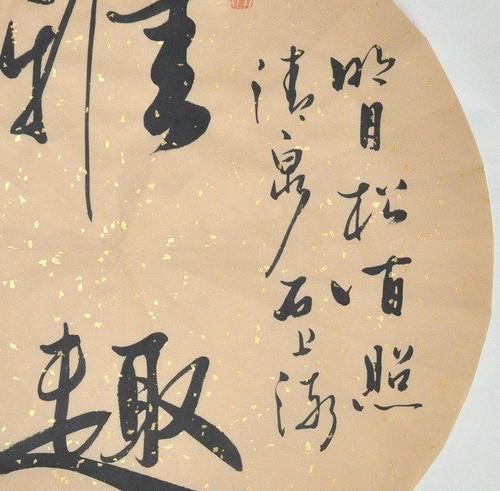 明月松间照
清泉石上流
雅趣